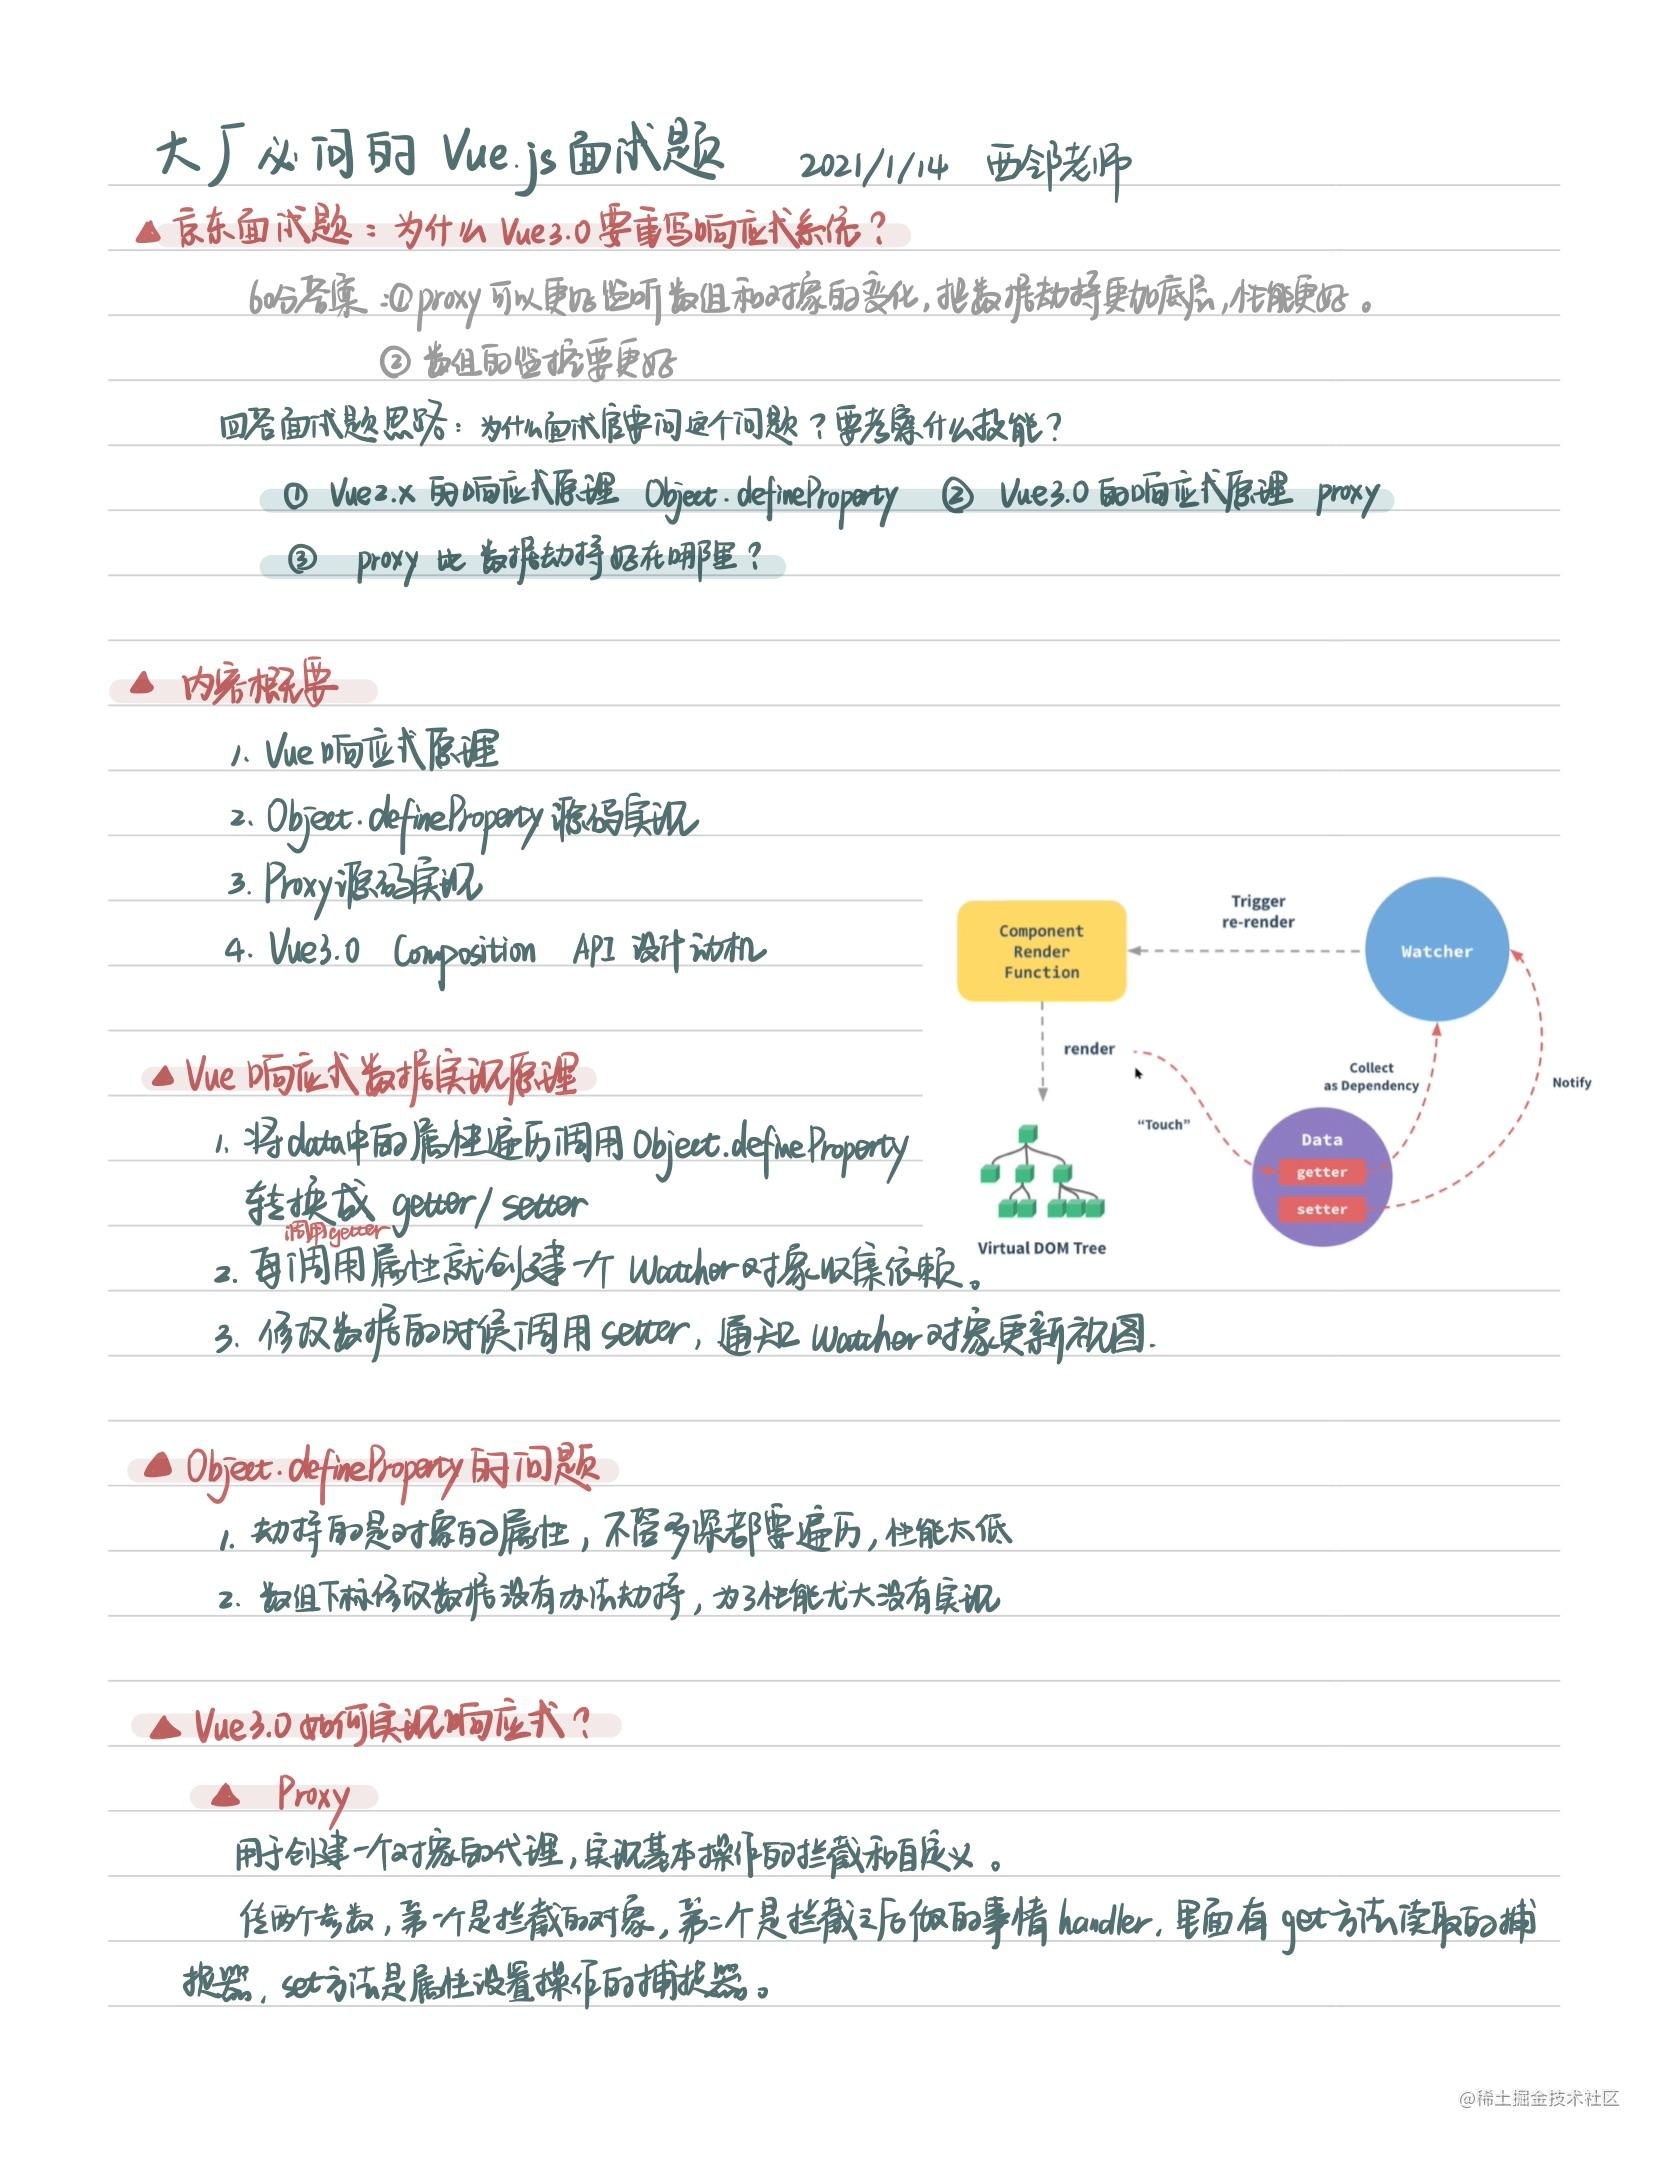 大厂必问的 Vue.js面试题 2021/1/14 西邻老师
▲ 京东面试题：为什么 Vue3.0 要重写响应式系统？
60分答案：① proxy 可以更好监听数组和对象的变化，把数据劫持更加底层，性能更好。
② 数组的监控要更好
回答面试题思路：为什么面试官要问这个问题？要考察什么技能？
① Vue2.x 的响应式原理 Object.defineProperty ② Vue3.0 的响应式原理 proxy
③ proxy 比 数据劫持好在哪里？
▲ 内容概要
1. Vue响应式原理
2. Object.defineProperty 源码实现
3. Proxy源码实现
4. Vue3.0 Composition API 设计动机
Trigger
re-render
Component
Render
Function
Watcher
render
Collect
as Dependency
Notify
“Touch”
Data
getter
setter
Virtual DOM Tree
▲ Vue 响应式数据实现原理
1. 将data中的属性遍历调用 Object.defineProperty
转换成 getter/setter
调用getter
2. 每调用属性就创建一个 Watcher对象收集依赖。
3. 修改数据的时候调用 setter，通知 Watcher对象更新视图.
▲ Object.defineProperty 的问题
1. 劫持的是对象的属性，不管多深都要遍历，性能太低
2. 数组下标修改数据没有办法劫持，为了性能尤大没有实现
▲ Vue3.0 如何实现响应式？
▲ Proxy
用于创建一个对象的代理，实现基本操作的拦截和自定义。
传两个参数，第一个是拦截的对象，第二个是拦截之后做的事情 handler. 里面有 get方法读取的捕
捉器. set方法是属性设置操作的捕捉器。
@稀土掘金技术社区